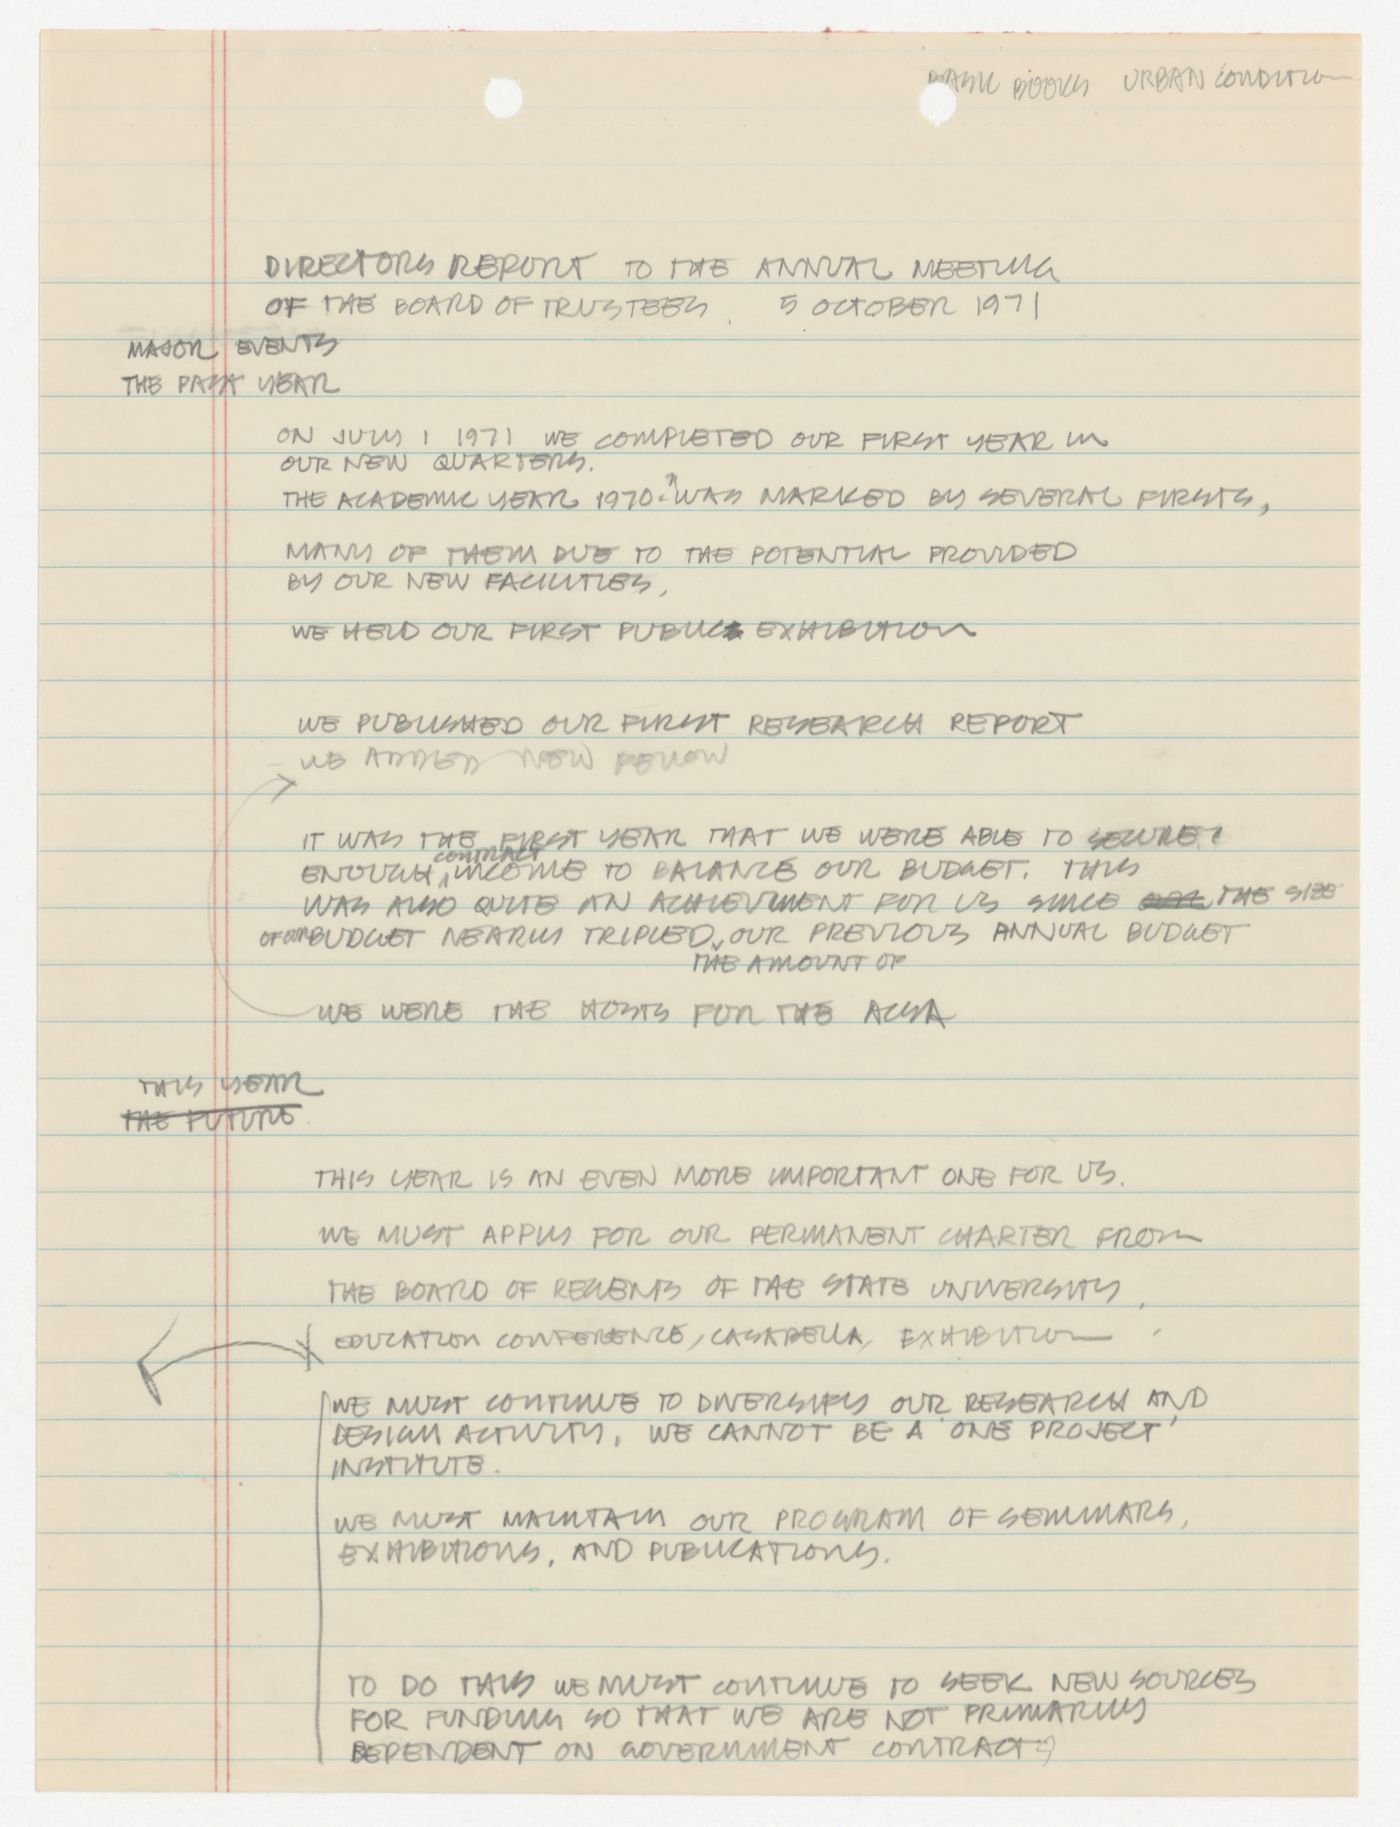 BASIC BOOKS URBAN CONDITION
DIRECTORS REPORT TO THE ANNUAL MEETING
OF THE BOARD OF TRUSTEES. 5 OCTOBER 1971
MAJOR EVENTS
THE PAST YEAR
ON JULY 1 1971 WE COMPLETED OUR FIRST YEAR IN
OUR NEW QUARTERS.
THE ACADEMIC YEAR 1970-71 WAS MARKED BY SEVERAL FIRSTS,
MANY OF THEM DUE TO THE POTENTIAL PROVIDED
BY OUR NEW FACILITIES,
WE HELD OUR FIRST PUBLIC EXHIBITION
WE PUBLISHED OUR FIRST RESEARCH REPORT
WE ADDED NEW FELLOW
IT WAS THE FIRST YEAR THAT WE WERE ABLE TO SECURE
ENOUGH CONTRACT INCOME TO BALANCE OUR BUDGET. THIS
WAS ALSO QUITE AN ACHIEVMENT FOR US SINCE THE SIZE
OF OUR BUDGET NEARLY TRIPLED THE AMOUNT OF OUR PREVIOUS ANNUAL BUDGET
WE WERE THE HOSTS FOR THE ACSA
THIS YEAR
THE FUTURE
THIS YEAR IS AN EVEN MORE IMPORTANT ONE FOR US.
WE MUST APPLY FOR OUR PERMANENT CHARTER FROM
THE BOARD OF REGENTS OF THE STATE UNIVERSITY,
EDUCATION CONFERENCE, CASABELLA, EXHIBITION
WE MUST CONTINUE TO DIVERSIFY OUR RESEARCH AND
DESIGN ACTIVITY. WE CANNOT BE A 'ONE PROJECT'
INSTITUTE.
WE MUST MAINTAIN OUR PROGRAM OF SEMINARS,
EXHIBITIONS, AND PUBLICATIONS.
TO DO THIS WE MUST CONTINUE TO SEEK NEW SOURCES
FOR FUNDING SO THAT WE ARE NOT PRIMARILY
DEPENDENT ON GOVERNMENT CONTRACTS